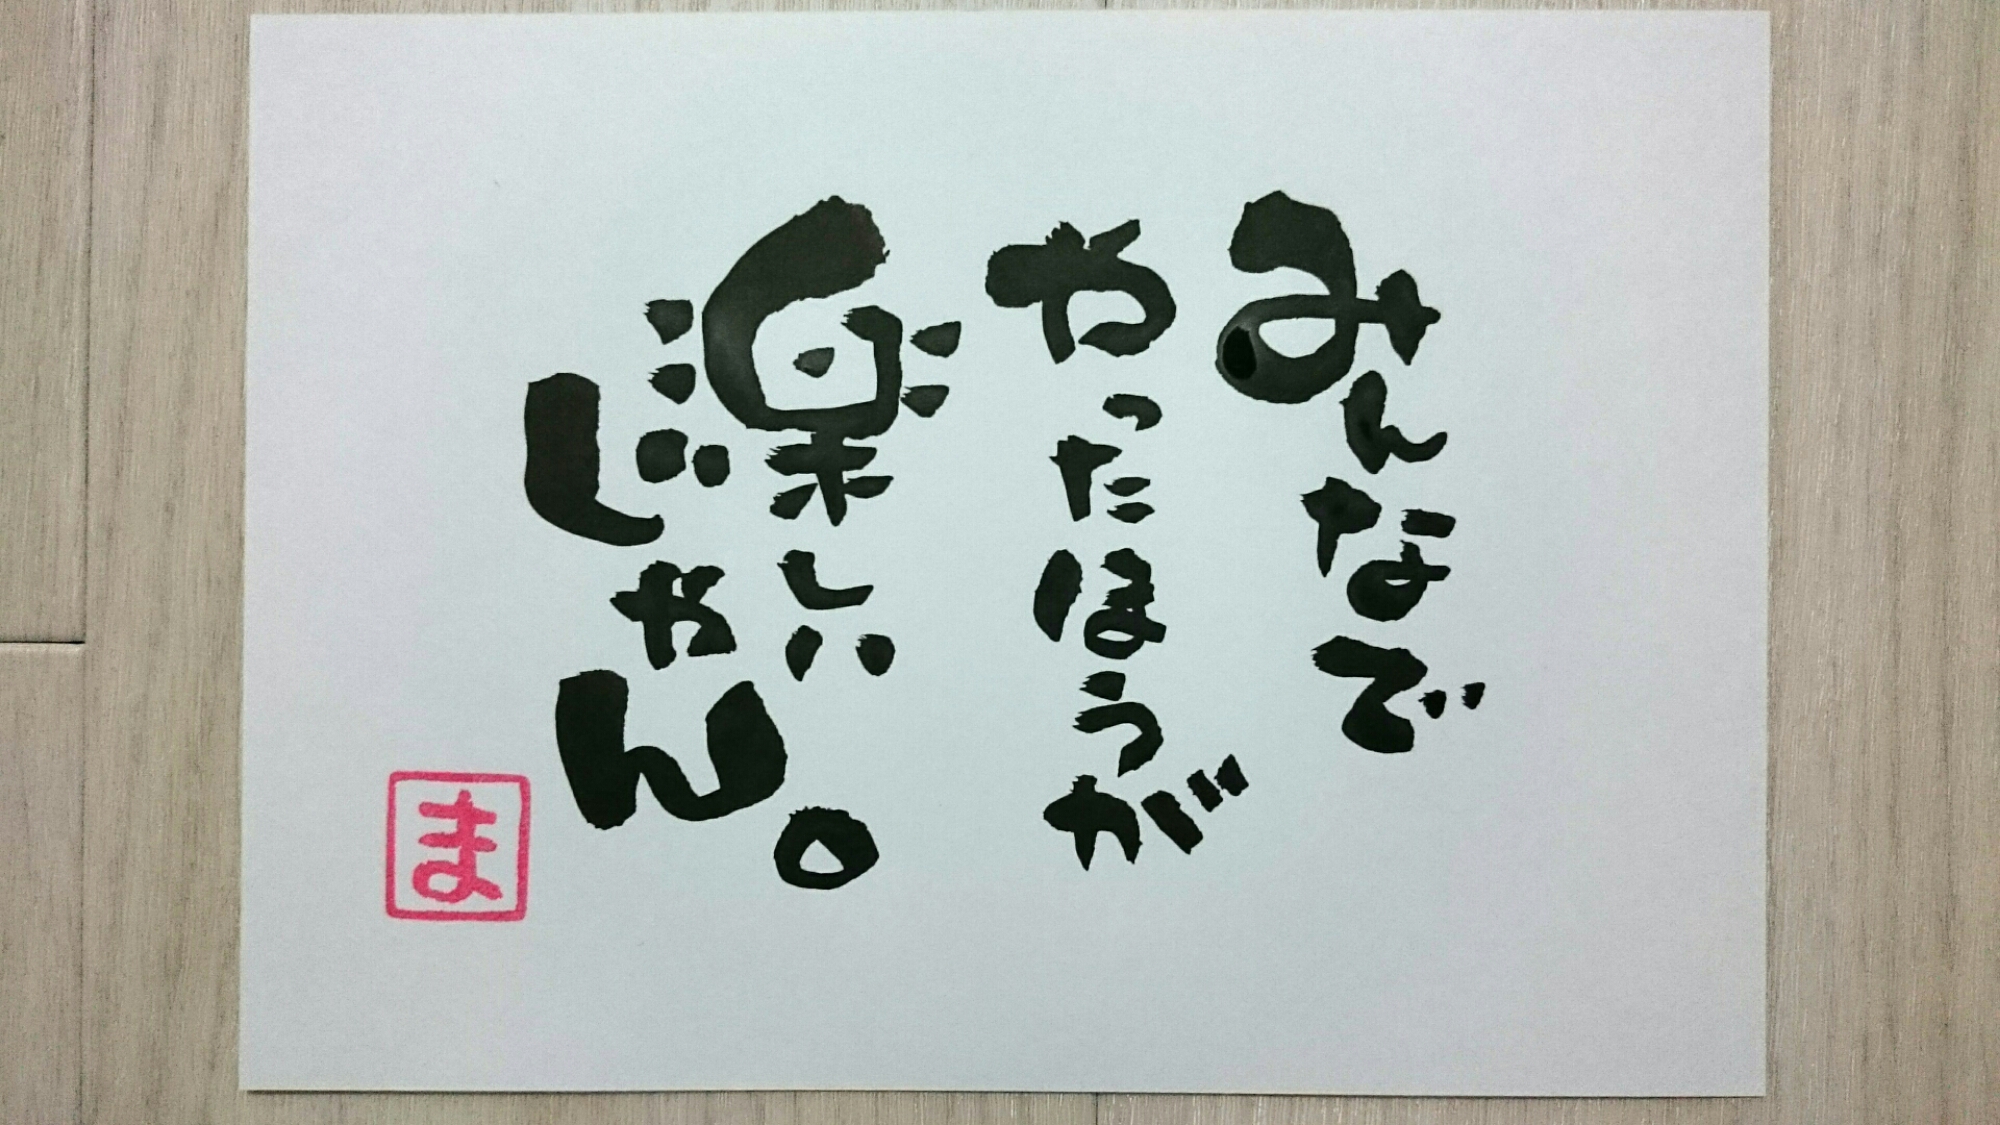 みんなで
やったほうが
楽しい
じゃん。
ま